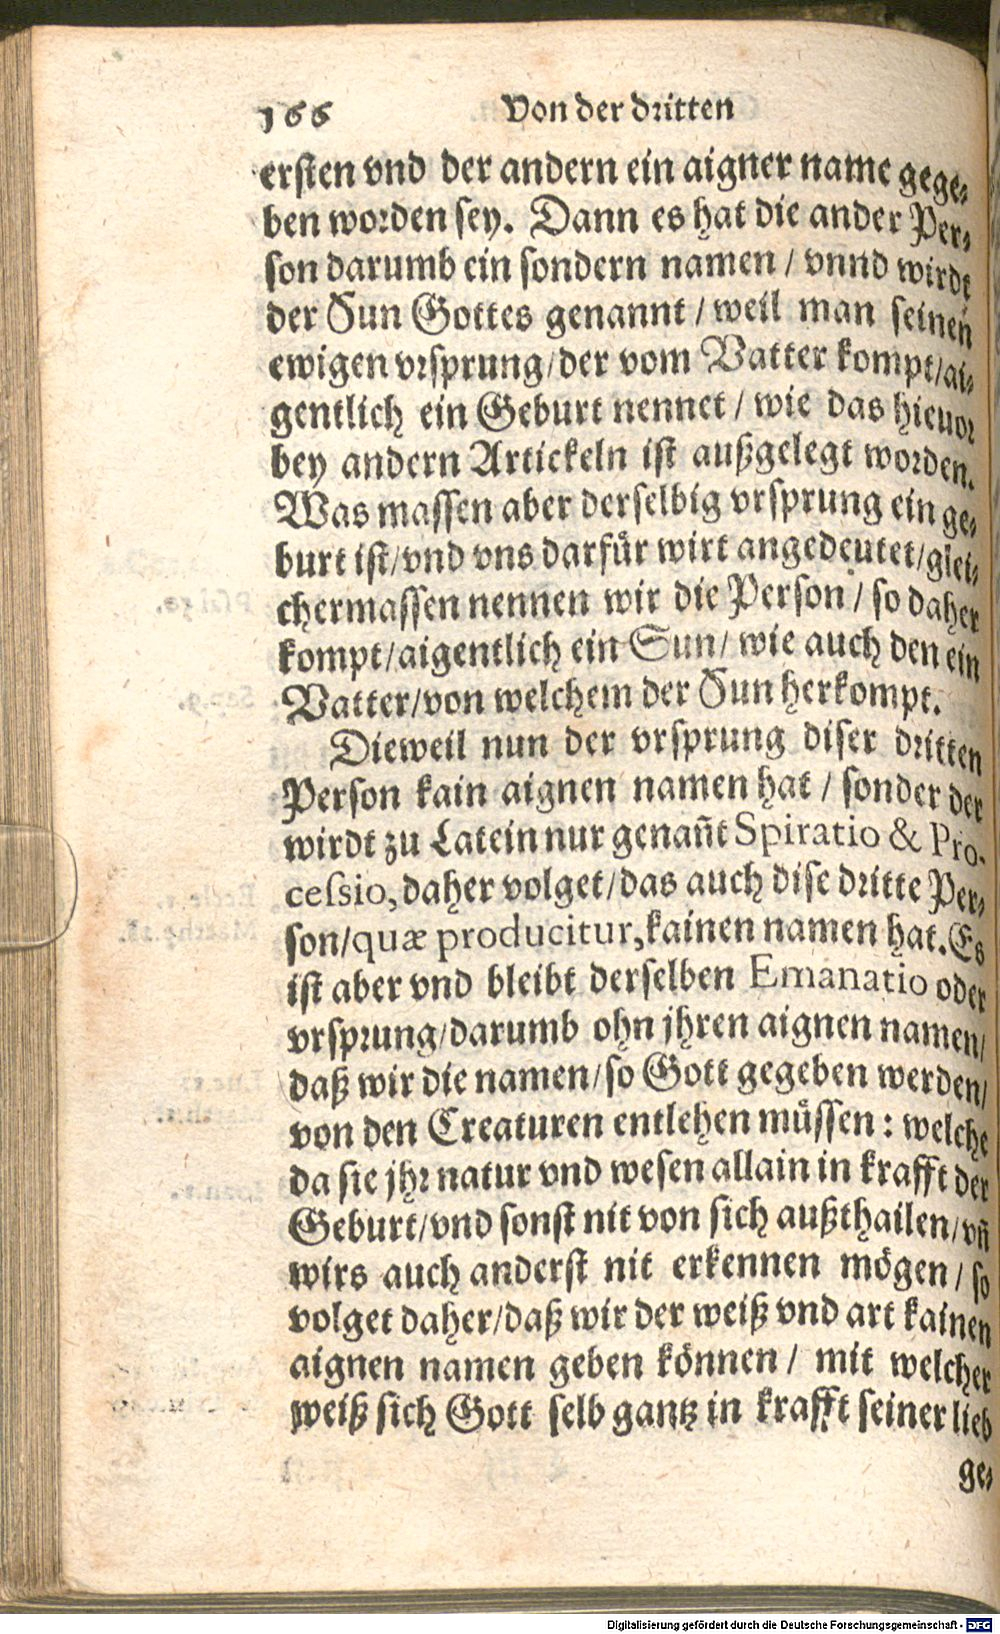 166 Von der dritten
ersten vnd der andern ein aigner name gege⸗
ben worden sey. Dann es hat die ander Per⸗
son darumb ein sondern namen / vnnd wirdt
der Sun Gottes genannt / weil man seinen
ewigen vrsprung/der vom Vatter kompt/ai⸗
gentlich ein Geburt nennet / wie das hieuor
bey andern Artickeln ist außgelegt worden.
Was massen aber derselbig vrsprung ein ge⸗
burt ist/vnd vns darfür wirt angedeutet/glei⸗
chermassen nennen wir die Person / so daher
kompt/aigentlich ein Sun/ wie auch den ein
Vatter/von welchem der Sun herkompt.
Dieweil nun der vrsprung diser dritten
Person kain aignen namen hat / sonder der
wirdt zu Latein nur genañt Spiratio & Pro-
cessio, daher volget/das auch dise dritte Per⸗
son/quæ producitur, kainen namen hat. Es
ist aber vnd bleibt derselben Emanatio oder
vrsprung/darumb ohn jhren aignen namen/
daß wir die namen/so Gott gegeben werden/
von den Creaturen entlehen müssen: welche
da sie jhr natur vnd wesen allain in krafft der
Geburt/vnd sonst nit von sich außthailen/vñ
wirs auch anderst nit erkennen mögen / so
volget daher/daß wir der weiß vnd art kainen
aignen namen geben können / mit welcher
weiß sich Gott selb gantz in krafft seiner lieb
ge⸗
Digitalisierung gefördert durch die Deutsche Forschungsgemeinschaft - DFG